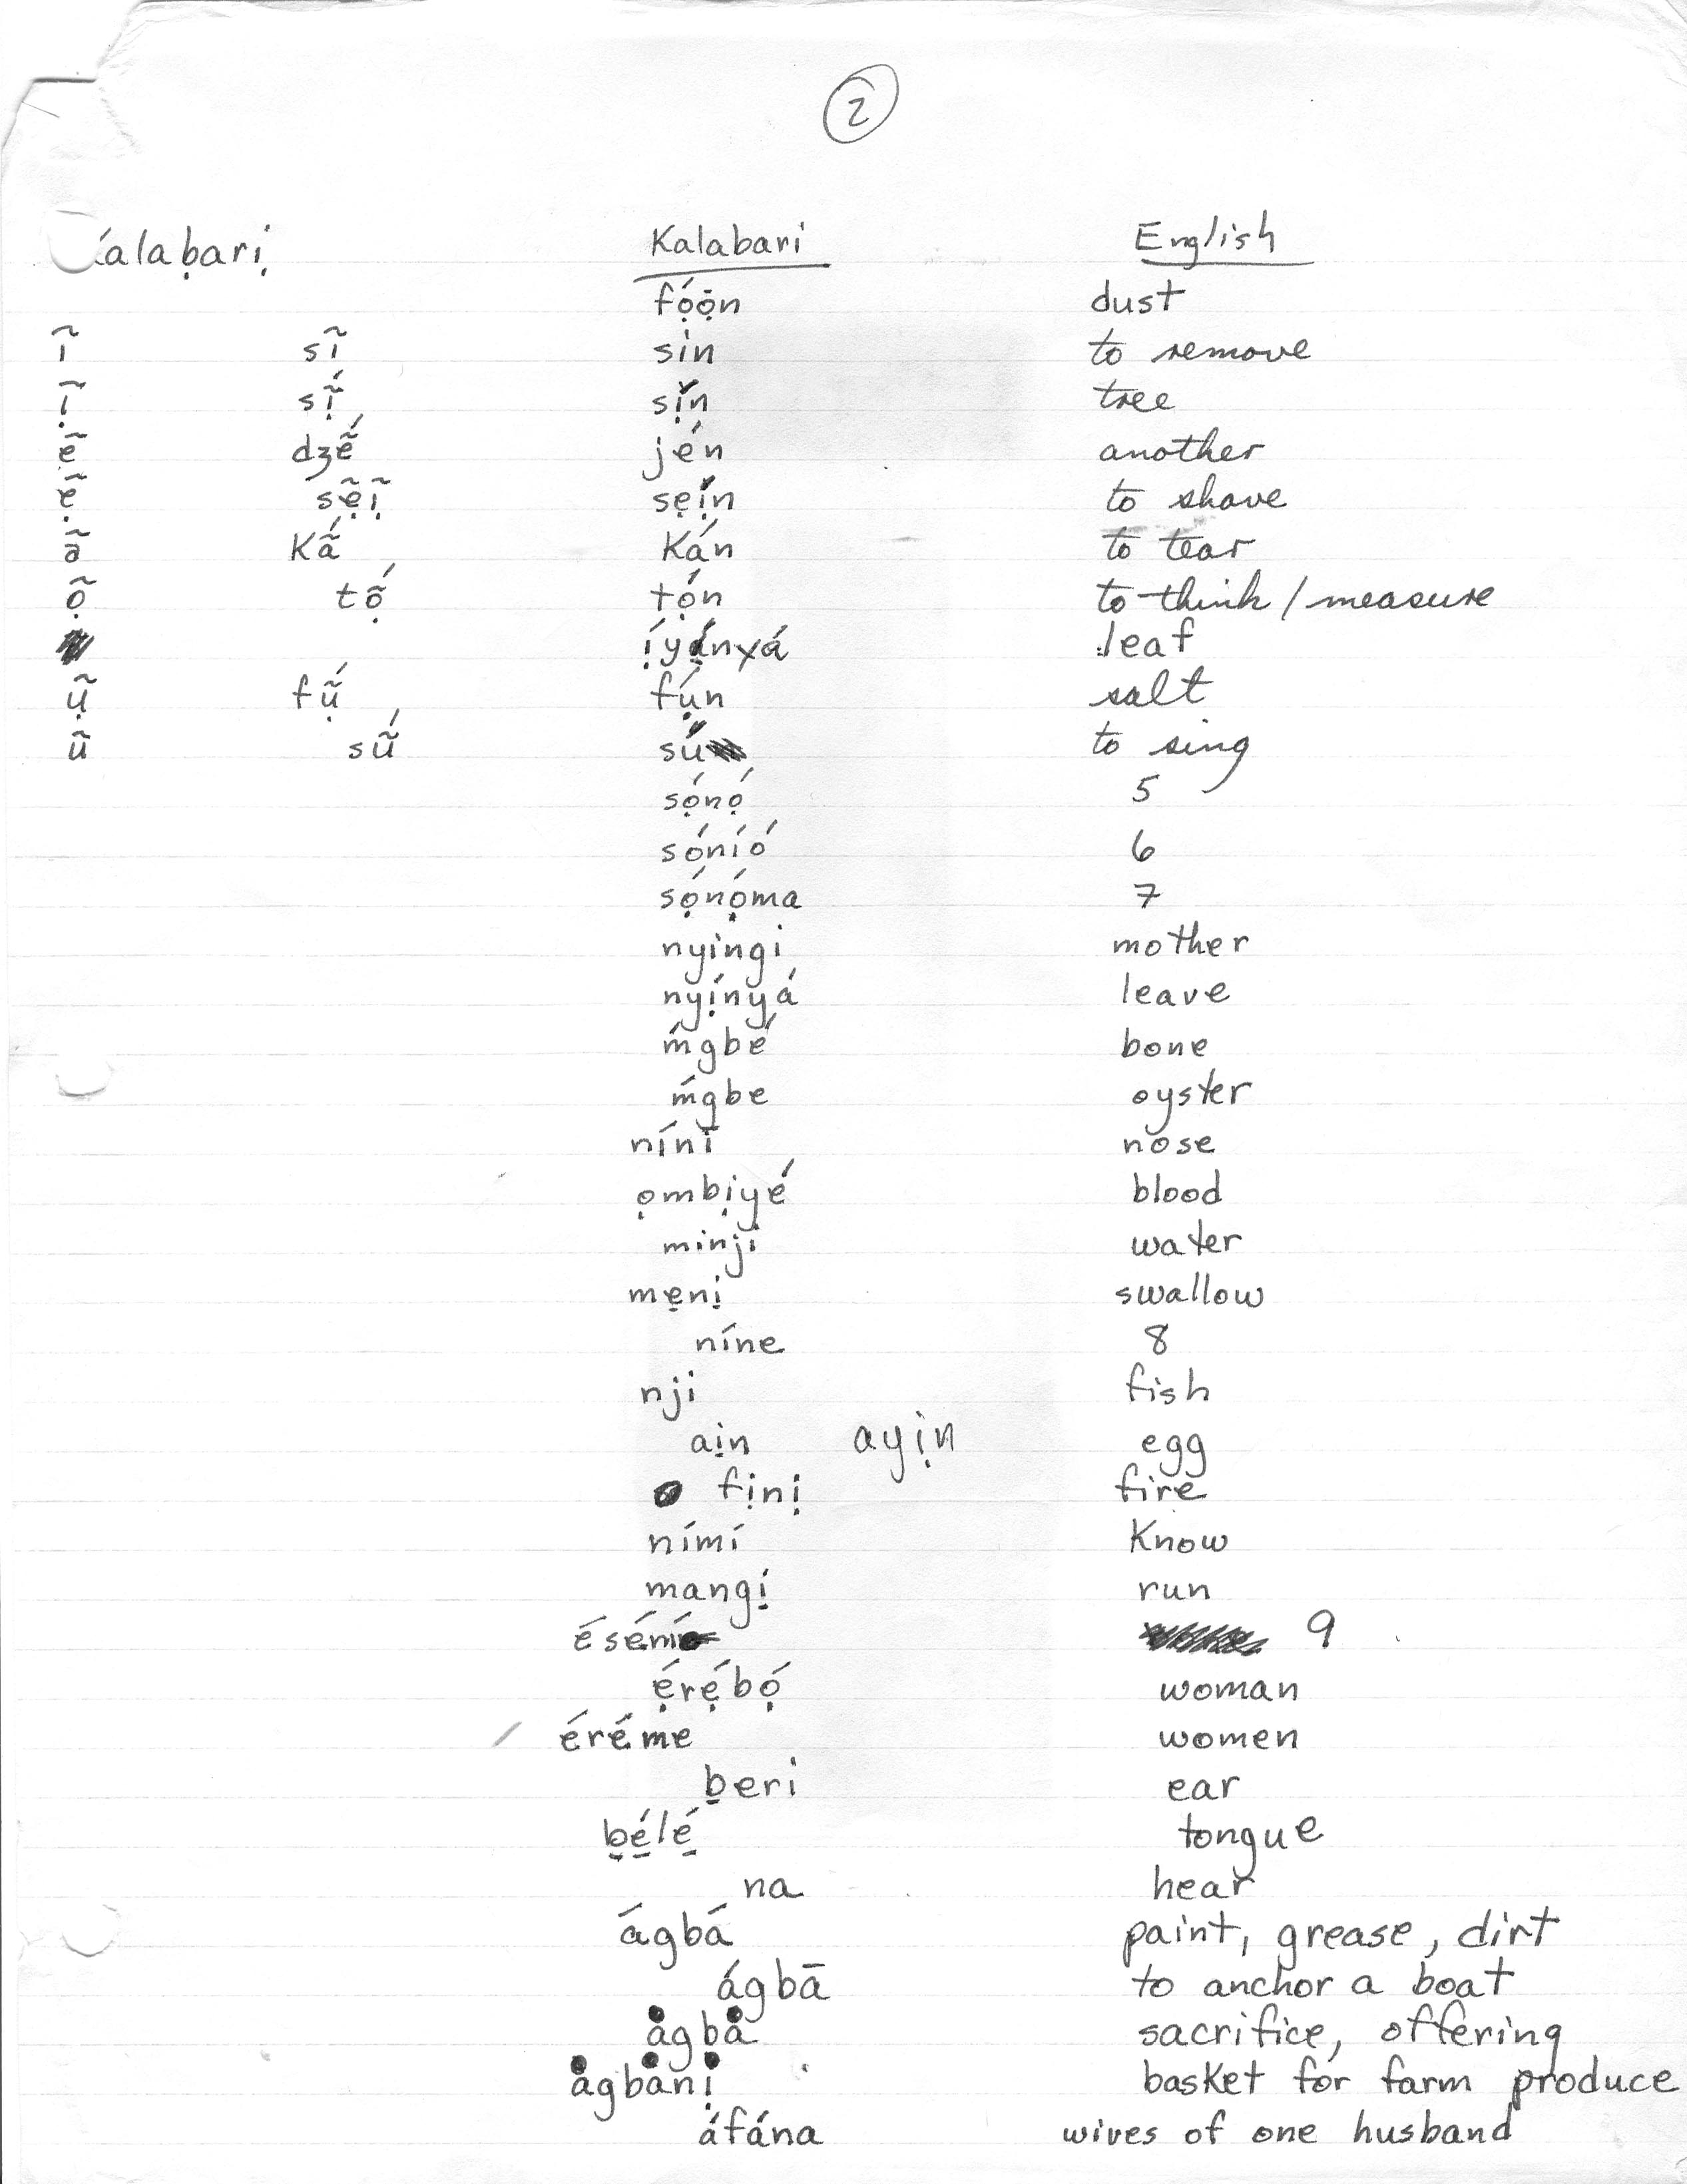 2
Kalaḅarị Kalabari English
fọ́ọ̄n dust
ĩ sĩ sin to remove
ị̃ sị̃́ sị́n tree
ẽ dʒẽ́ jén another
ẹ̃ sẹ̃ị̃ sẹị́n to shave
ã kã́ kán to tear
ọ̃ tọ̃́ tọ́n to think / measure
ị́yạ́nyá leaf
ụ̃ fụ̃́ fụ́n salt
ũ sṹ sú to sing
sọ́nọ́ 5
sóníó 6
sọ́nọ́ma 7
nyingi mother
nyị́nyá leave
ḿgbé bone
ḿgbe oyster
níni nose
ọmbịyé blood
minji water
mẹnị swallow
níne 8
nji fish
aịn ayịn egg
fịnị fire
nímí know
mangị́ run
éséní 9
ẹ́rẹ́bọ́ woman
éréme women
ḅeri ear
ḅẹ́lẹ́ tongue
na hear
ágbá paint, grease, dirt
ágbā to anchor a boat
ȧgbȧ sacrifice, offering
ȧgbȧnị basket for farm produce
áfána wives of one husband